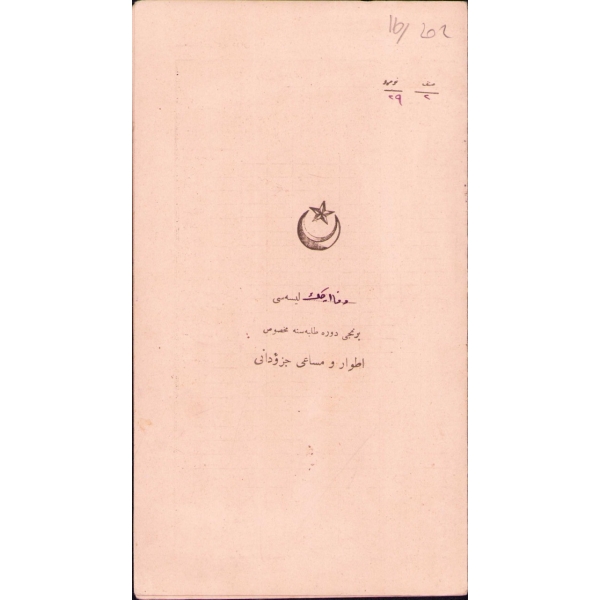 16/202
صنف نومرو
٢ ٢٩
ليسه‌سى
برنجى دوره طلبه‌سنه مخصوص
اطوار و مساعى جزؤدانى